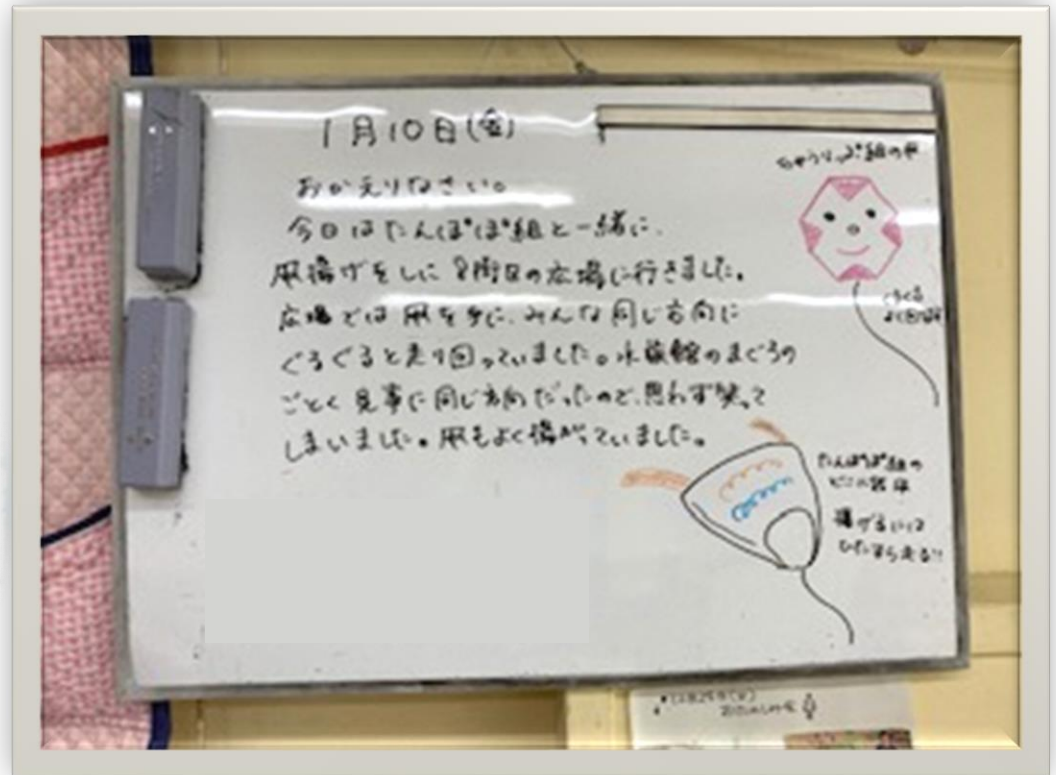 1月10日(金)
おかえりなさい。
今日はたんぽぽ組と一緒に、
凧揚げをしに8街区の広場に行きました。
広場では凧を手に、みんな同じ方向に
ぐるぐると走り回っていました。水族館のまぐろの
ごとく見事に同じ方向だったので、思わず笑って
しまいました。凧もよく揚がっていました。
ちゅうりっぷ組の
ぐるぐる
たんぽぽ組の
揚げるには
ひたすら走る!!